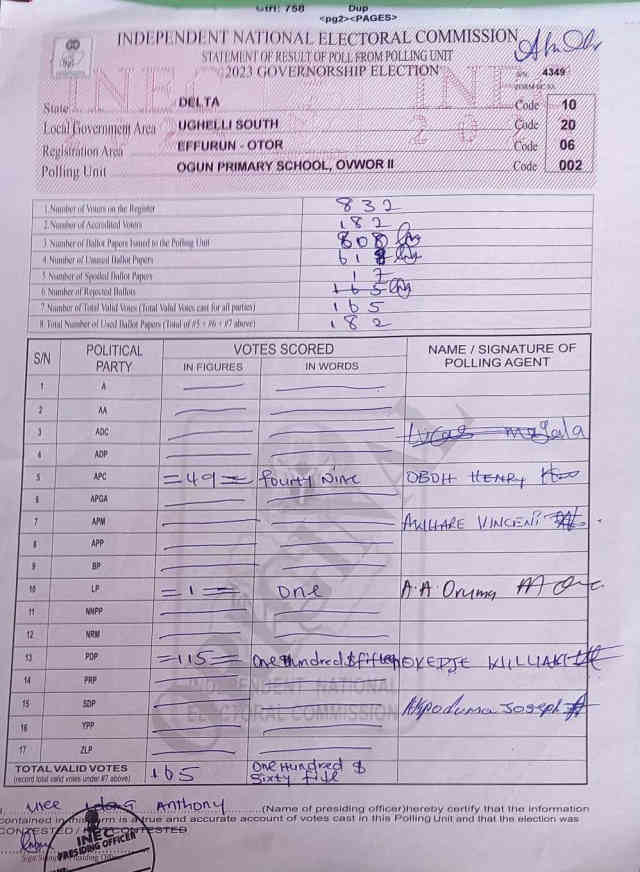 Ctrl: 758 Dup
<pg2><PAGES>
INDEPENDENT NATIONAL ELECTORAL COMMISSION
STATEMENT OF RESULT OF POLL FROM POLLING UNIT
2023 GOVERNORSHIP ELECTION
S/N 4349
State DELTA Code 10
Local Government Area UGHELLI SOUTH Code 20
Registration Area EFFURUN - OTOR Code 06
Polling Unit OGUN PRIMARY SCHOOL, OVWOR II Code 002
1.Number of Voters on the Register 832
2.Number of Accredited Voters 182
3 Number of Ballot Papers Issued to the Polling Unit 808
4 Number of Unused Ballot Papers 618
5 Number of Spoiled Ballot Papers
17
6 Number of Rejected Ballots 165
7 Number of Total Valid Votes (Total Valid Votes cast for all parties) 165
8.Total Number of Used Ballot Papers (Total of #5 + #6 + #7 above) 182
S/N POLITICAL PARTY VOTES SCORED NAME / SIGNATURE OF POLLING AGENT
IN FIGURES IN WORDS
1 A
2 AA
3 ADC Lucas
4 ADP
5 APC =49= fourty Nine OBOH HENRY
6 APGA
7 APM VINCENT
8 APP
9 BP
10 LP =1= one A.A Oruma
11 NNPP
12 NRM
13 PDP =115= One Hundred & fifteen
14 PRP
15 SDP Joseph
16 YPP
17 ZLP
TOTAL VALID VOTES 165 One Hundred &
(record total valid votes under #7 above) Sixty five
I, Anthony (Name of presiding officer)hereby certify that the information
contained in this form is a true and accurate account of votes cast in this Polling Unit and that the election was
CONTESTED / NOT CONTESTED
INEC
PRESIDING OFFICER
ORIGINAL
INDEPENDENT NATIONAL
ELECTORAL COMMISSION